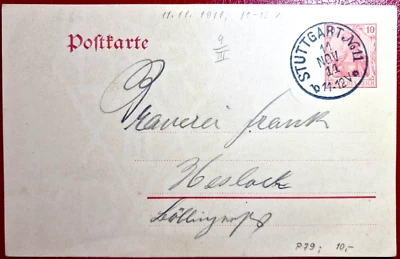 11.11.1911, 11-12 V
9
III
Postkarte
10
STUTTGART No 11
11
NOV
11
b 11-12 V
Brauerei Frank
Heslach
P79; 10,-